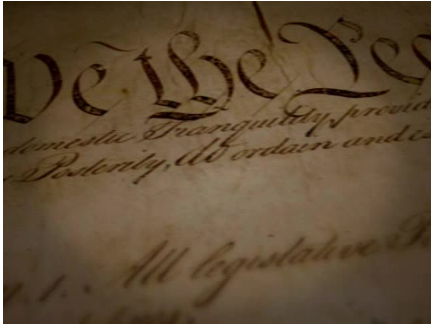 We the Peo
domestic Tranquility, provid
Posterity, do ordain and e
1. All legislative P